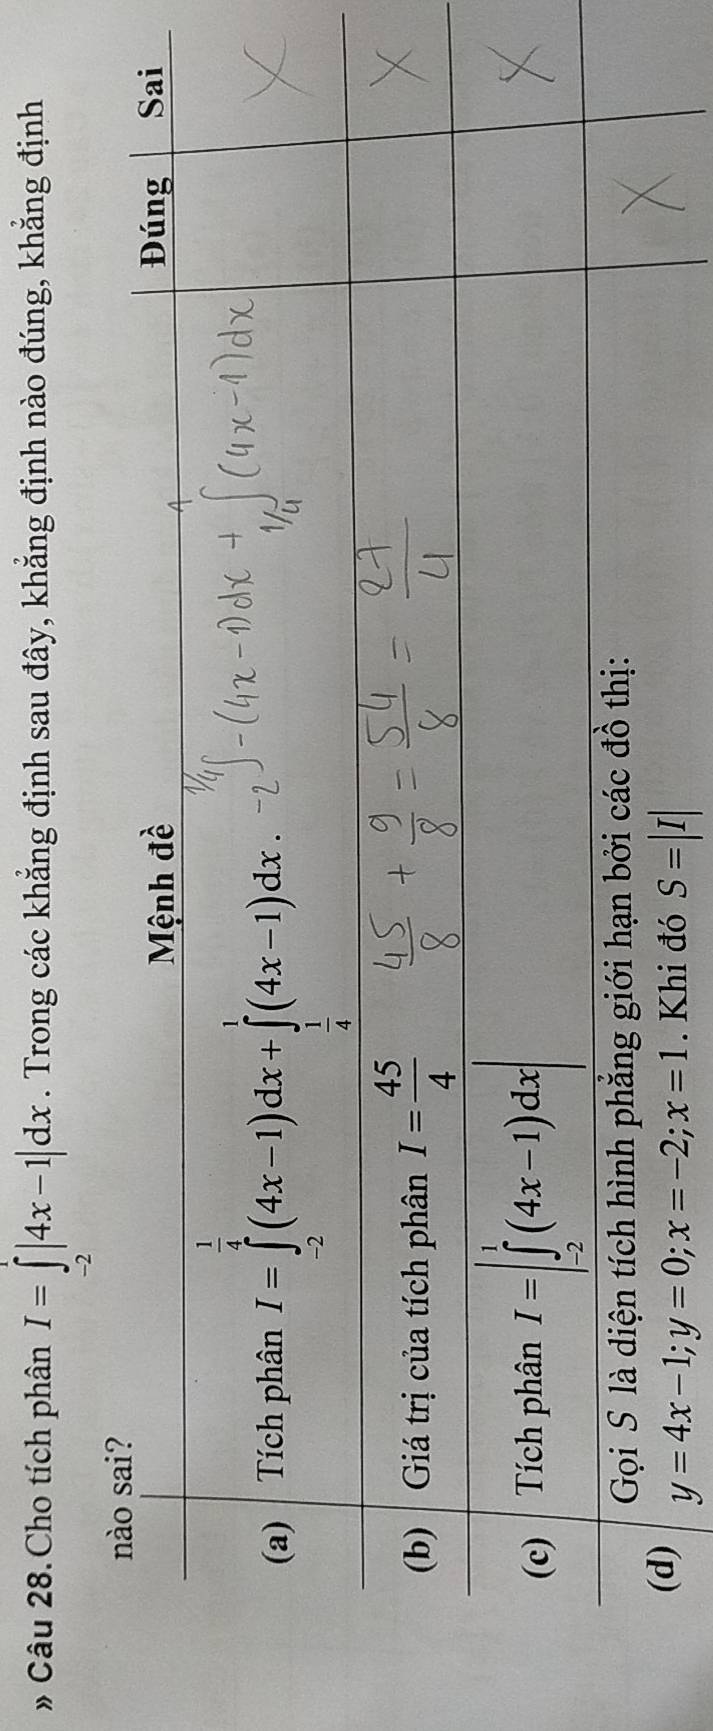 » Câu 28. Cho tích phân I = ∫_{-2}^{1} |4x − 1| dx. Trong các khẳng định sau đây, khẳng định nào đúng, khẳng định
nào sai?
Mệnh đề Đúng Sai
(a) Tích phân I = ∫_{-2}^{1/4} (4x − 1) dx + ∫_{1/4}^{1} (4x − 1) dx. ∫_{-2}^{1/4} -(4x - 1) dx + ∫_{1/4}^{1} (4x - 1) dx X
(b) Giá trị của tích phân I = 45/4 45/8 + 9/8 = 54/8 = 27/4 X
(c) Tích phân I = |∫_{-2}^{1} (4x − 1) dx| X
(d) Gọi S là diện tích hình phẳng giới hạn bởi các đồ thị: X
y = 4x − 1; y = 0; x = −2; x = 1. Khi đó S = |I|